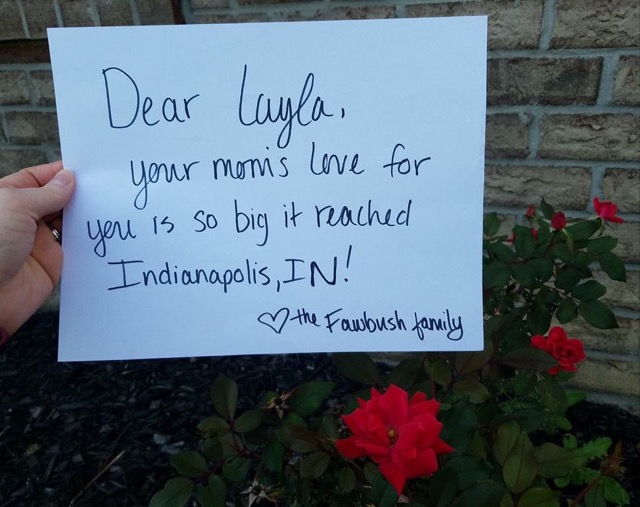 Dear Layla,
your mom's love for
you is so big it reached
Indianapolis, IN!
♡ the Fawbush family